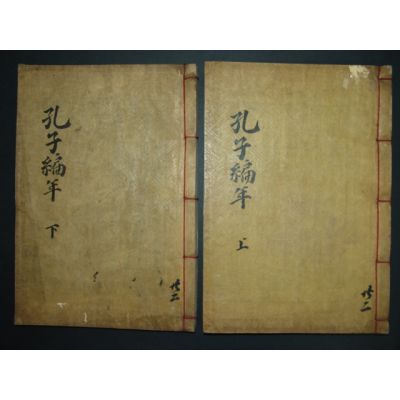 孔子編年 上
共二
孔子編年 下
共二